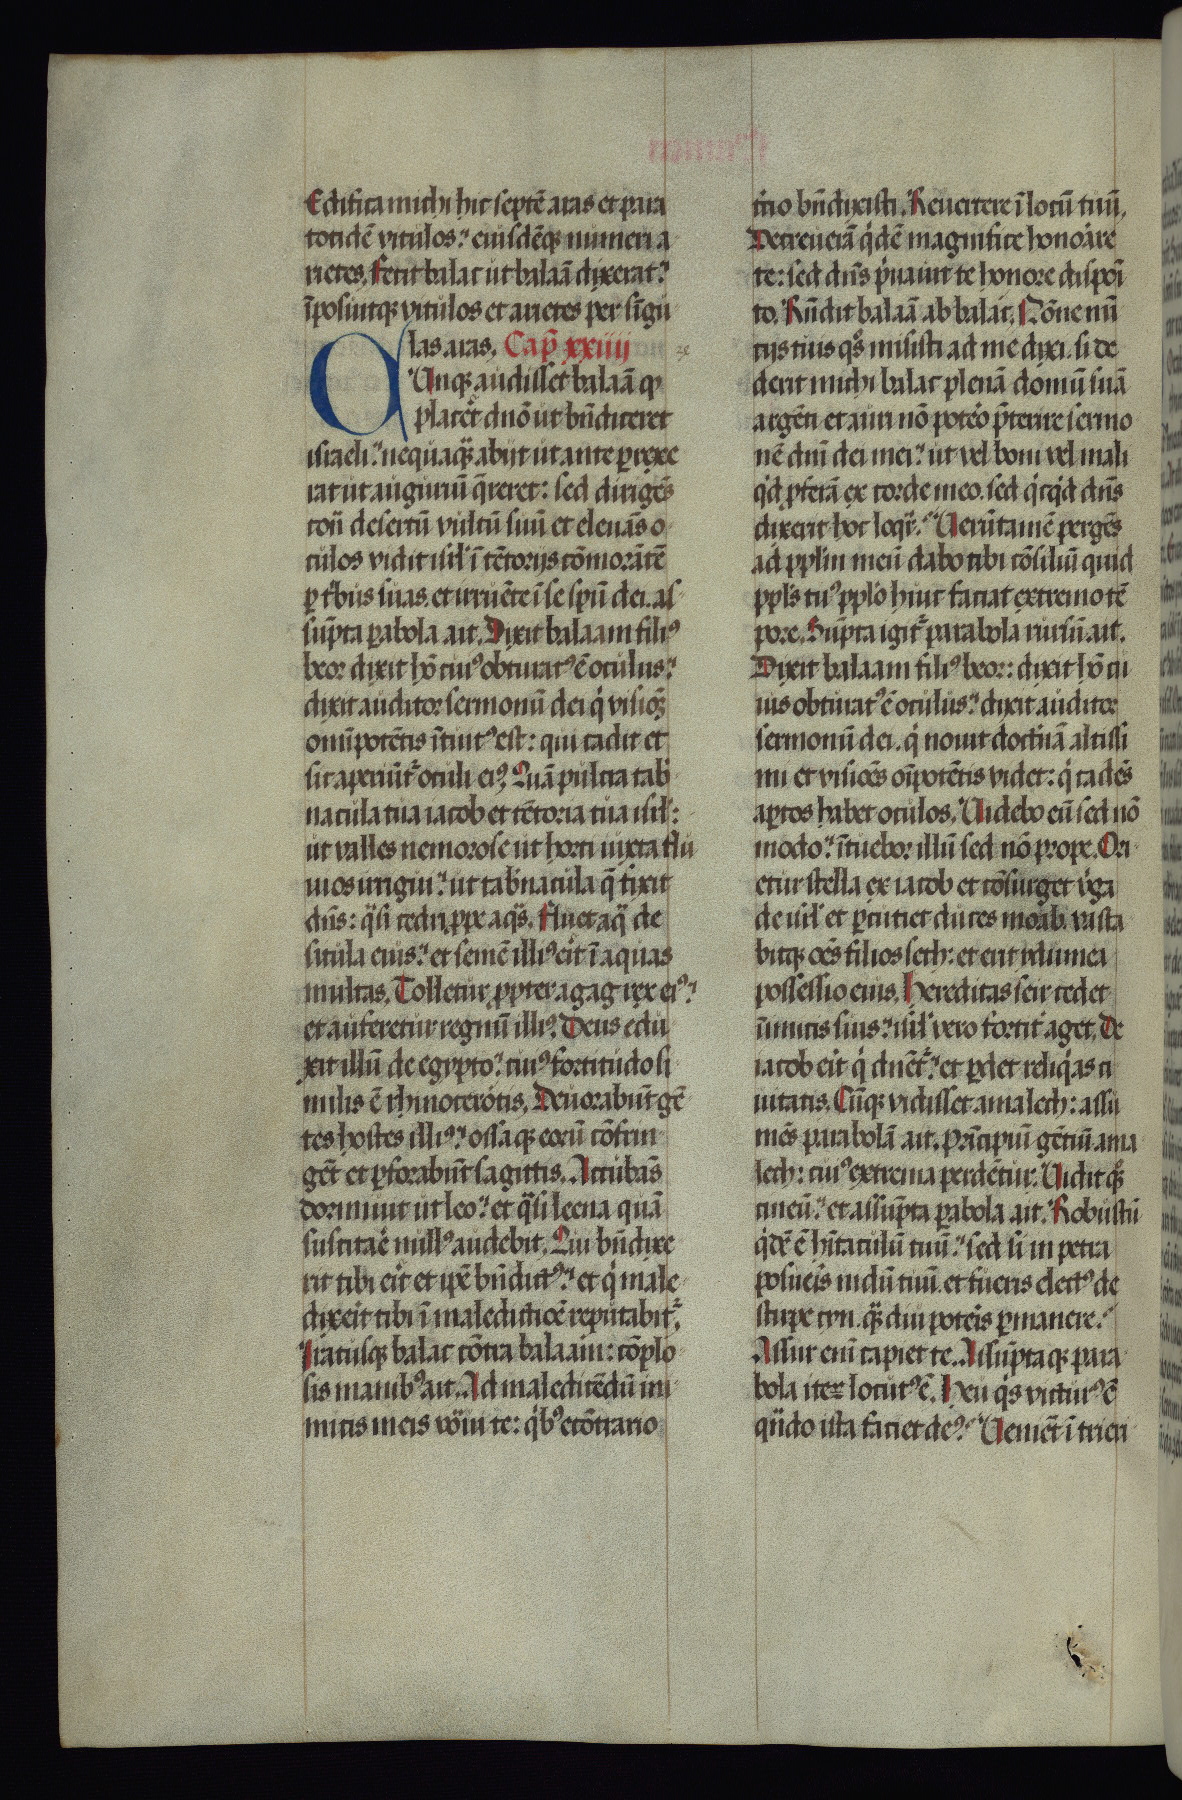 Edifica michi hic septē aras et para
totidē vitulos: eiusdēq; numeri a
rietes. Fecit balac ut balaā dixerat:
īposuitq; vitulos et arietes per singu
las aras. Cap̄ xxiiii
CUnq; audisset balaā q
placēt dnō ut bn̄diceret
israeli: nequaq̄ abijt ut ante prexe
rat ut auguriū q̄reret: sed dirigēs
cont̄ desertū vultū suū et eleuās o
culos vidit isrl' ī tētorijs cōmorātē
p tbus suas. et irruēte ī se spū dei. as
sūpta parabola ait. Dixit balaam fili⁹
beor dixit hō cui⁹ obturat⁹ ē oculus:
dixit auditor sermonū dei qͥ visioēꝫ
omīpotētis ītuit⁹ est: qui cadit et
sic aperiūt᷑ oculi ei⁹. Quā pulcra tab
nacula tua iacob et tētoria tua isrl':
ut valles nemorose ut horti iuxta flu
uios irrigui: ut tab'nacula q̄ fixit
dn̄s: q̄si cedri ppe aq̄s. Fluet aq̄ de
situla eius: et semē illi⁹ eīt ī aquas
multas. Tolletur ppter agag rex ei⁹:
et auferetur regnū illi⁹. Deus edu
xit illū de egypto: cui⁹ fortitudo si
milis ē rhinocerōtis. Deuorabūt gē
tes hostes illi⁹: ossaq; eorū cōfrin
gēt et pforabūt sagittis. Accubās
dormiuit ut leo: et q̄si leena quā
suscitaē null⁹ audebit. Qui bn̄dixe
rit tibi eīt et ipē bn̄dict⁹: et qͥ male
dixeīt tibi ī maledictioē reputabit᷑.
Iratusq; balac cōtra balaam: cōplo
sis manib⁹ ait. Ad maledicēdū ini
micis meis vocaui te: qͥb⁹ ecōtrario
tͥcio bn̄dixisti. Reuertere ī locū tuū.
Decreuerā qͥdē magnifice honorare
te: sed dn̄s pͥuauit te honore disposi
to. Rn̄dit balaā ab balac. Nōne nū
tijs tuis qͦs misisti ad me dixi. si de
derit michi balac plenā domū suā
argēti et auri nō poteo p̄terire sermo
nē dn̄i dei mei: ut vel boni vel mali
qͥd pferā ex corde meo. sed qͥcqͥd dn̄s
dixerit hoc loqr᷑. Uerūtamē pergēs
ad pplm meū dabo tibi cōsiliū quid
ppl's tu⁹ pplo huic faciat extremo tē
pore. Sūpta igit᷑ parabola rursū ait.
Dixit balaam fili⁹ beor: dixit hō cu
ius obturat⁹ ē oculus: dixit auditor
sermonū dei. qͥ nouit doctnā altissi
mi et visioēs oīpotētis videt: qͥ cadēs
aptos habet oculos. Uidebo eū sed nō
modo: ītuebor illū sed nō prope. Ori
etur stella ex iacob et cōsurget vͥga
de isrl' et pcutiet duces moab. vasta
bitq; oēs filios seth: et erit ydumea
possessio eius. Hereditas seir cedet
īimicis suis: isrl' vero fortit᷑ aget. De
iacob eīt qͥ dnēt᷑: et pdet reliqͥas ci
uitatis. Cūq; vidisset amalech: assu
mēs parabolā ait. Prīcipiū gētiū ama
lech: cui⁹ extrema perdētur. Uidit qͦꝫ
cineū: et assūpta pabola ait. Robustū
qͥdē ē hītaculū tuū: sed si in petra
posueis nidū tuū. et fueris elect⁹ de
stirpe cyn. q̄ diu poteis pmanere:
Assur enī capiet te. Assūptaq; para
bola iteꝝ locut⁹ ē. Heu qͥs victur⁹ ē
qn̄do ista faciet de⁹: Ueniēt ī trieri